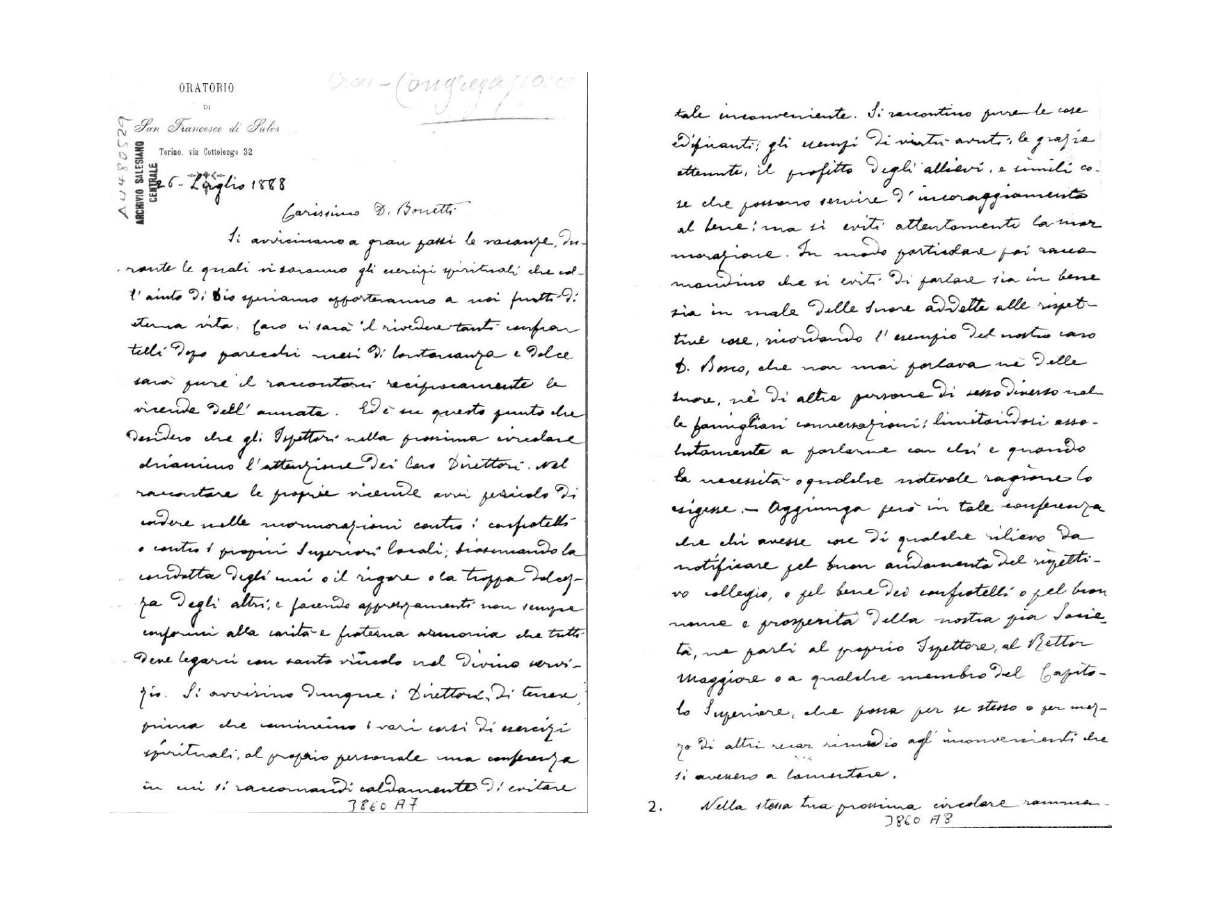 Congregazione
ORATORIO
DI
San Francesco di Sales
Torino, via Cottolengo 32
AU480529
ARCHIVIO SALESIANO
CENTRALE
26 - Luglio 1888
Carissimo D. Bonetti
Si avvicinano a gran passi le vacanze, du-
rante le quali vi saranno gli esercizi spirituali che col-
l'aiuto di Dio speriamo apporteranno a noi frutti di
eterna vita. Caro ci sarà il rivedere tanti confra-
telli dopo parecchi mesi di lontananza e dolce
sarà pure il raccontarsi reciprocamente le
vicende dell'annata. Ed è su questo punto che
desidero che gli Ispettori nella prossima circolare
chiamino l'attenzione dei loro Direttori. Nel
raccontare le proprie vicende avvi pericolo di
cadere nelle mormorazioni contro i confratelli
o contro i propri Superiori locali, biasimando la
condotta degli uni o il rigore o la troppa dolcez-
za degli altri, e facendo apprezzamenti non sempre
conformi alla carità e fraterna armonia che tutti
deve legarci con santo vincolo nel divino servi-
zio. Si avvisino dunque i Direttori, di tenere,
prima che comincino i vari corsi di esercizi
spirituali, al proprio personale una conferenza
in cui si raccomandi caldamente di evitare
3860 A7
tale inconveniente. Si raccontino pure le cose
edificanti; gli esempi di virtù avuti, le grazie
ottenute, il profitto degli allievi, e simili co-
se che possono servire d'incoraggiamento
al bene; ma si eviti attentamente la mor
morazione. In modo particolare poi racco
mandino che si eviti di parlare sia in bene
sia in male delle Suore addette alle rispet-
tive case, ricordando l'esempio del nostro caro
D. Bosco, che non mai parlava nè delle
suore, nè di altre persone di sesso diverso nel
le famigliari conversazioni; limitandosi asso-
lutamente a parlarne con chi e quando
la necessità o qualche notevole ragione lo
esigesse. - Aggiunga però in tale conferenza
che chi avesse cose di qualche rilievo da
notificare pel buon andamento del rispetti-
vo collegio, o pel bene dei confratelli o pel buon
nome e prosperità della nostra pia Socie-
tà, ne parli al proprio Ispettore, al Rettor
Maggiore o a qualche membro del Capito-
lo Superiore, che possa per se stesso o per mez-
zo di altri recar rimedio agl'inconvenienti che
si avessero a lamentare.
2. Nella stessa tua prossima circolare ramme-
3860 A8